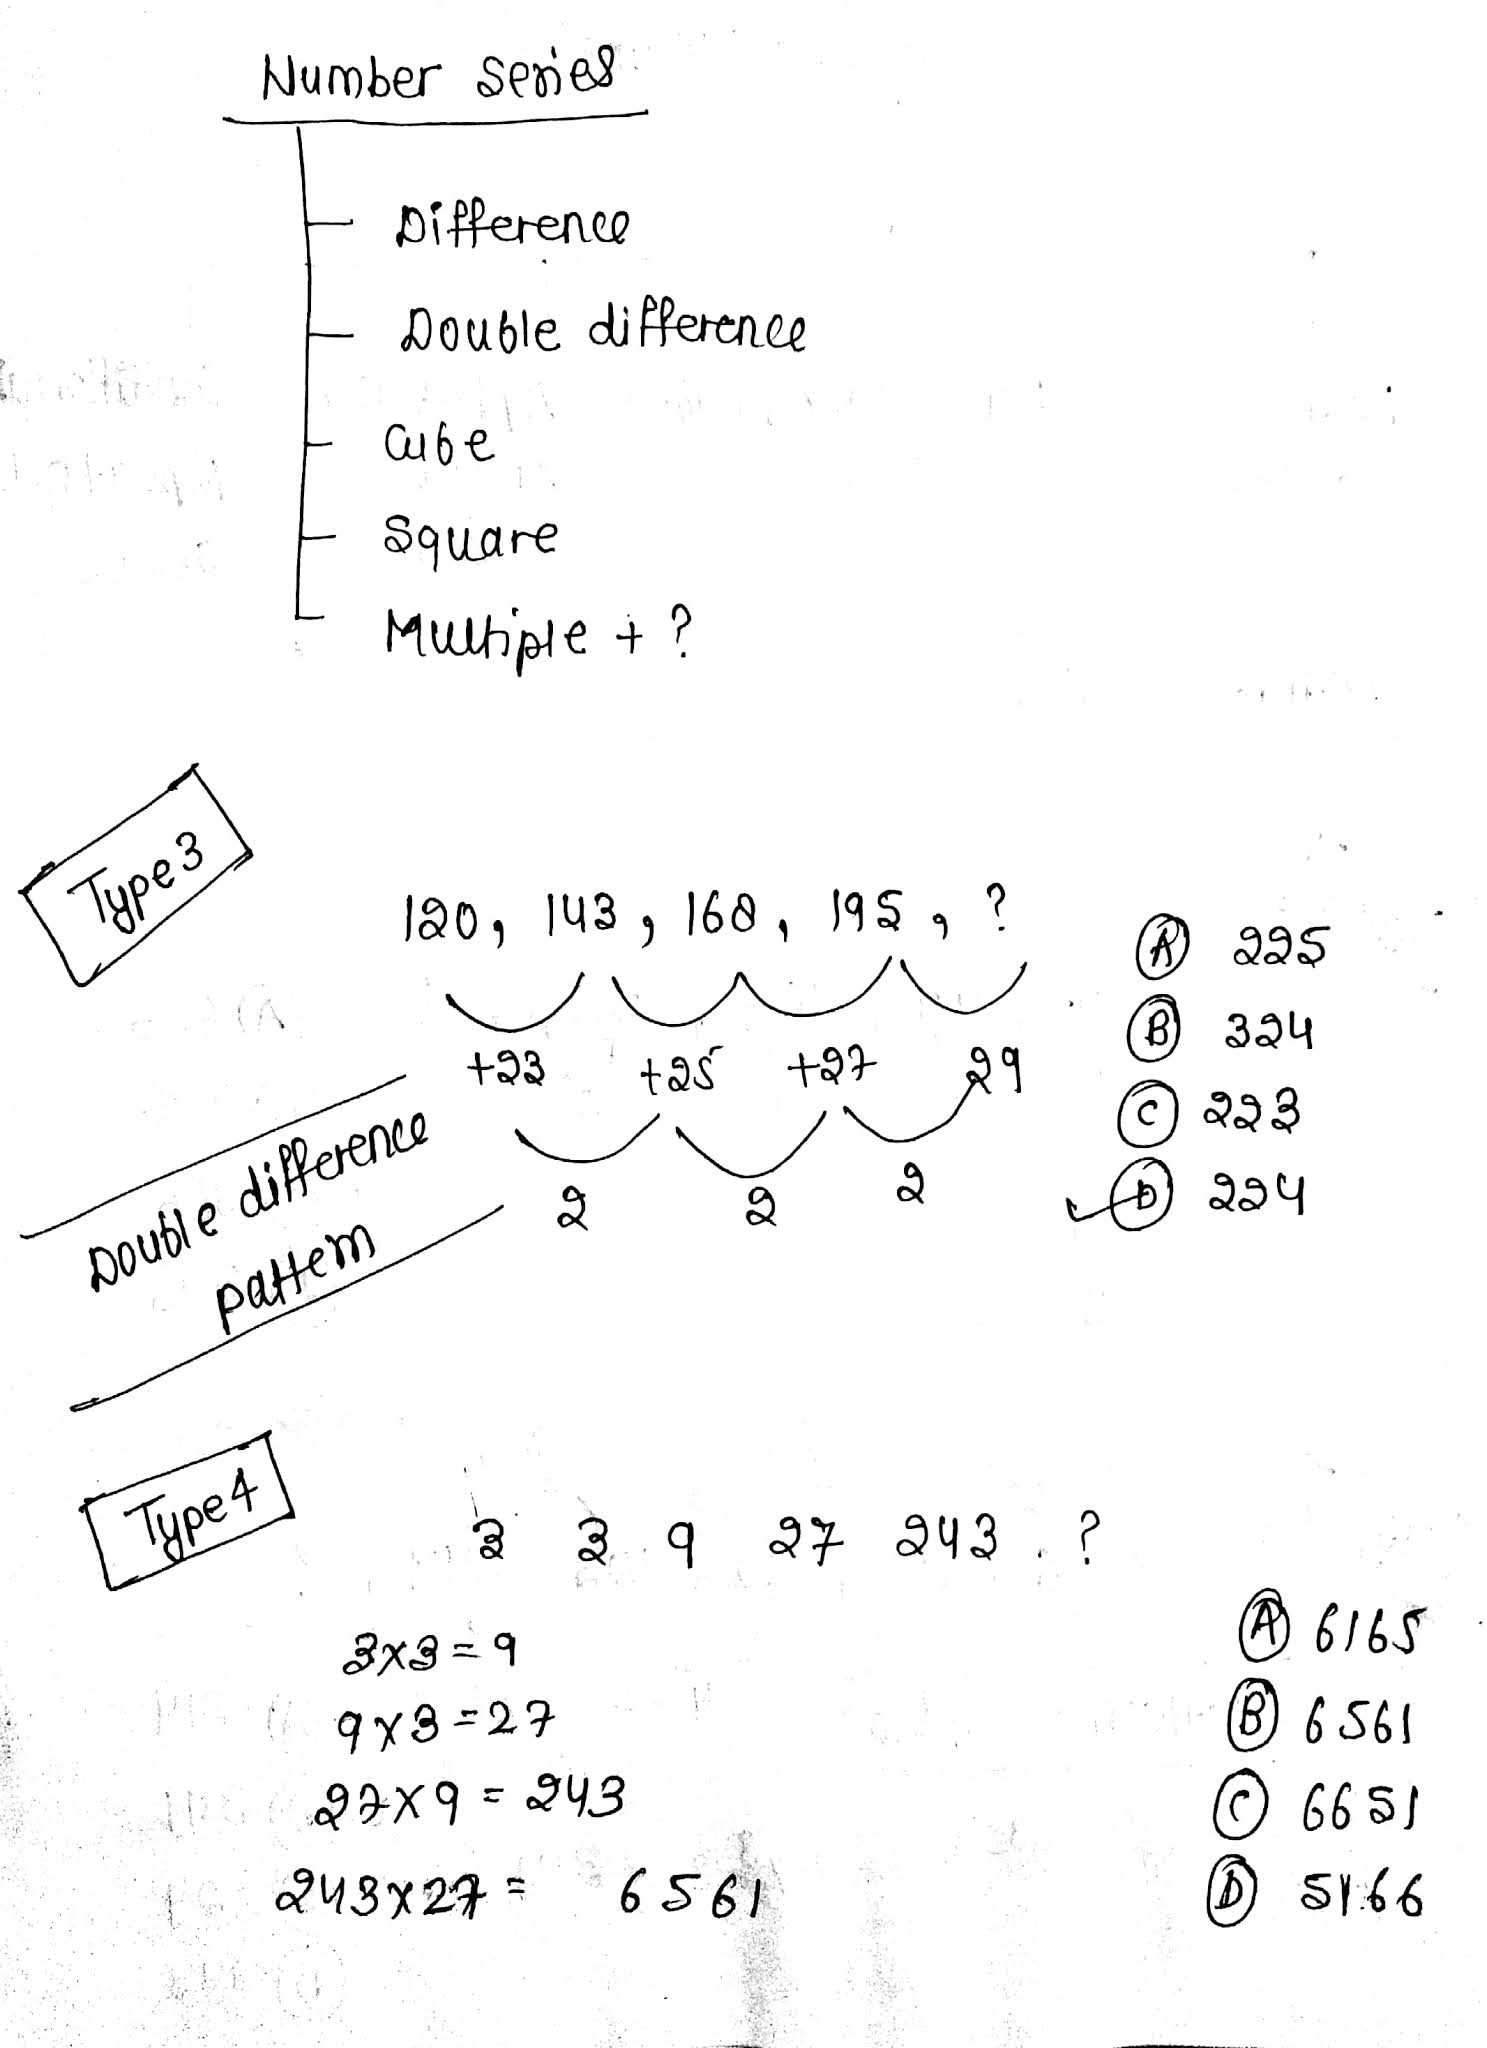 Number series
Difference
Double difference
Cube
Square
Multiple + ?
Type 3
120, 143, 168, 195, ?
+23 +25 +27 29
2 2 2
Double difference
pattern
A 225
B 324
C 223
D 224
Type 4
3 3 9 27 243 . ?
3x3=9
9x3=27
27x9 = 243
243x27 = 6561
A 6165
B 6561
C 6651
D 5166